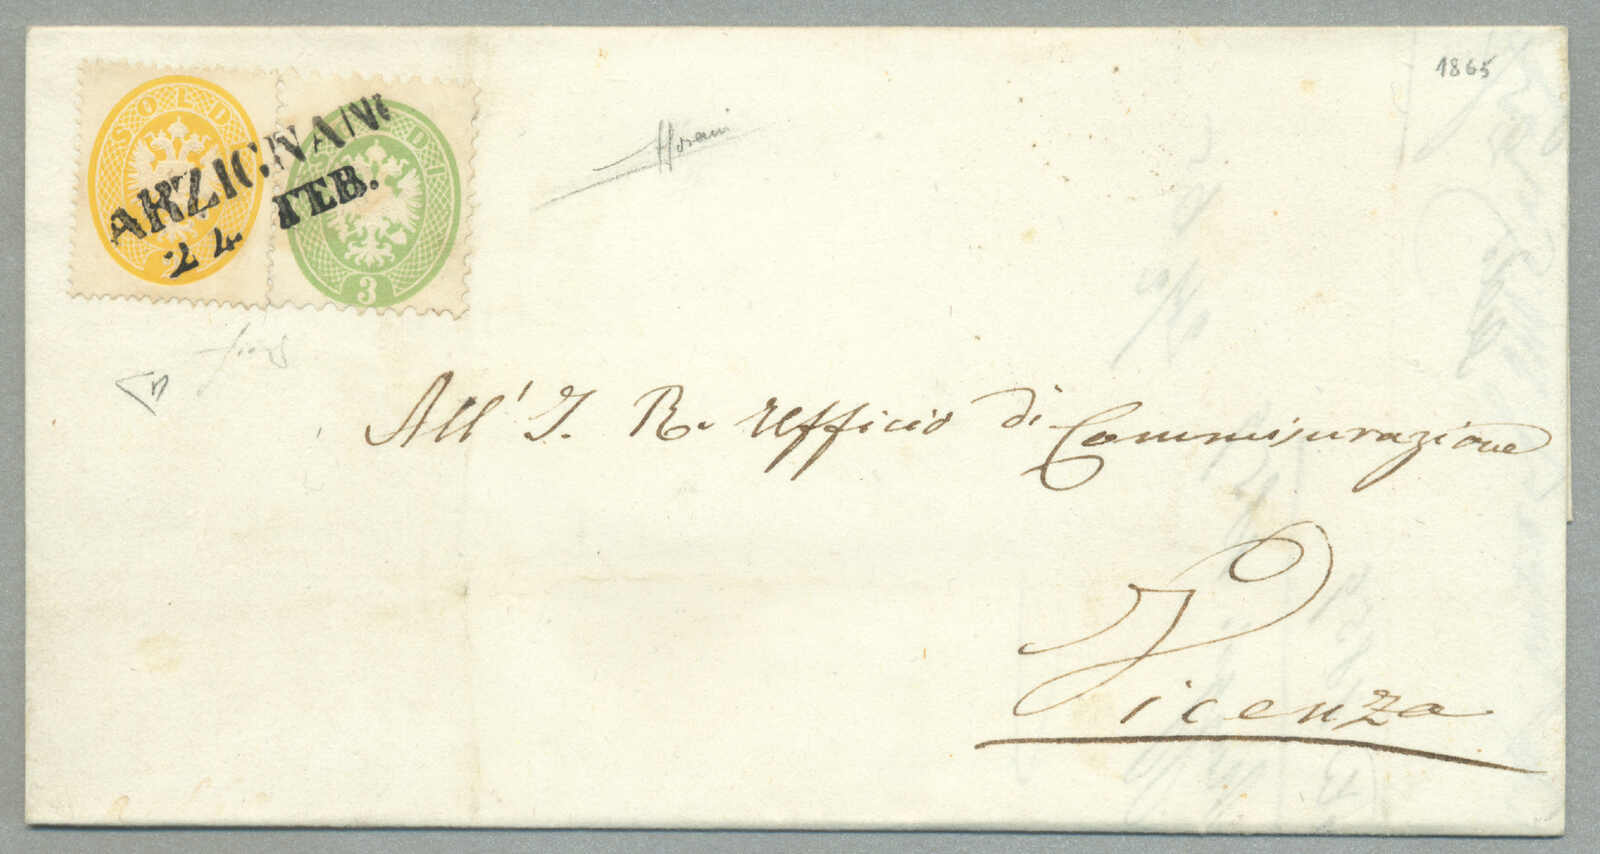 1865
SOLD
ARZIGNANO
24 FEB.
3
All' I. R. Ufficio di Commisurazione
Vicenza